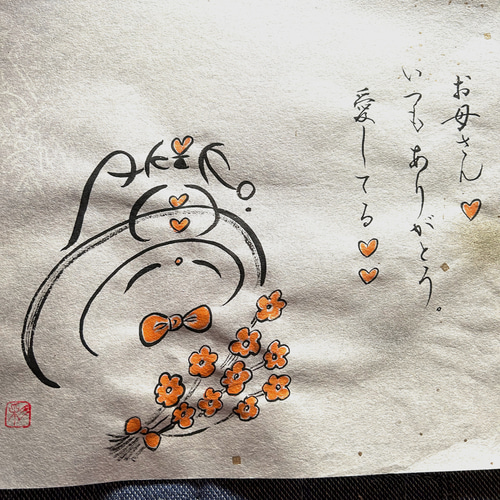 お母さん
いつもありがとう。
愛してる
AKiKO.